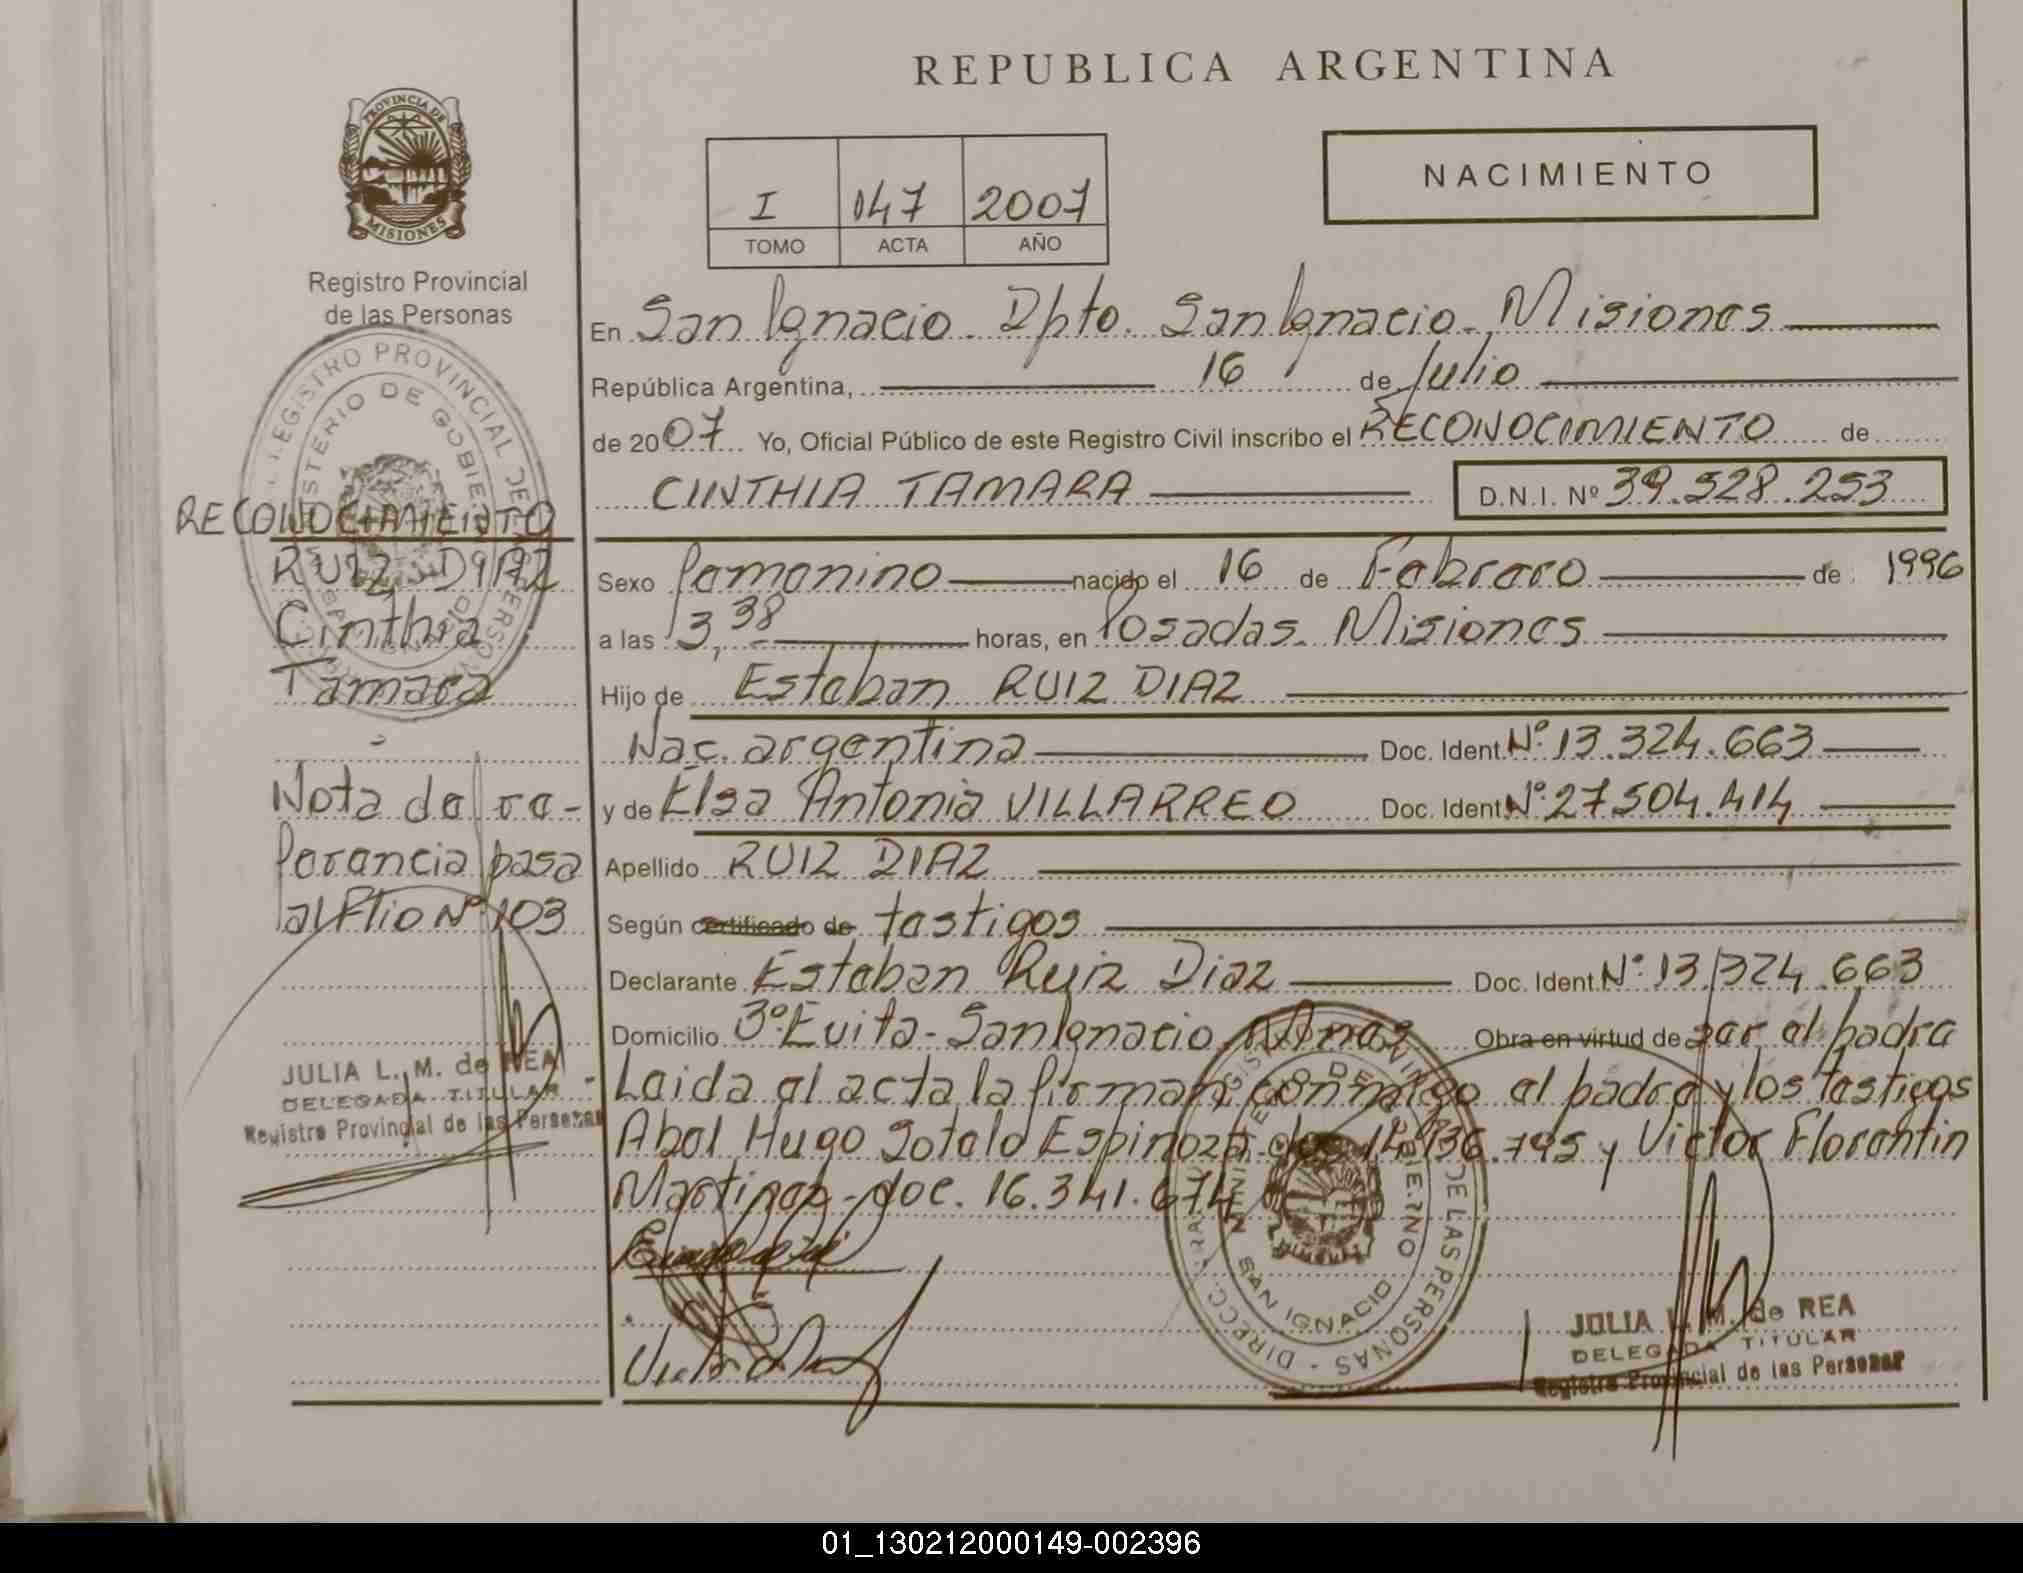 REPUBLICA ARGENTINA
PROVINCIA DE
MISIONES
Registro Provincial
de las Personas
NACIMIENTO
I 147 2007
TOMO ACTA AÑO
En San Ignacio. Dpto. San Ignacio. Misiones
República Argentina, 16 de Julio
de 2007 Yo, Oficial Público de este Registro Civil inscribo el RECONOCIMIENTO de
CINTHIA TAMARA D.N.I. Nº 39.528.253
Sexo femenino nacido el 16 de Febrero de 1996
a las 3,38 horas, en Posadas. Misiones
Hijo de Esteban RUIZ DIAZ
Nac. argentina Doc. Ident. Nº 13.324.663
y de Elsa Antonia VILLARREO Doc. Ident. Nº 27.504.414
Apellido RUIZ DIAZ
Según certificado de testigos
Declarante Esteban Ruiz Diaz Doc. Ident. Nº 13.324.663
Domicilio 3º Evita - San Ignacio Mnes Obra en virtud de ser el padre
Leida el acta la firman conmigo el padre y los testigos
Abel Hugo Sotelo Espinoza doc 14.136.795 y Victor Florentin
Martinez - doc. 16.341.674
RECONOCIMIENTO
RUIZ DIAZ
Cinthia
Tamara
Nota de re-
ferencia pasa
al Flio Nº 103
JULIA L. M. de REA
DELEGADA TITULAR
Registro Provincial de las Personas
REGISTRO PROVINCIAL DE LAS PERSONAS
MINISTERIO DE GOBIERNO
DE LAS PERSONAS - DIRECC.
MINISTERIO DE GOBIERNO
SAN IGNACIO
JULIA L. M. de REA
DELEGADA TITULAR
Registro Provincial de las Personas
01_130212000149-002396